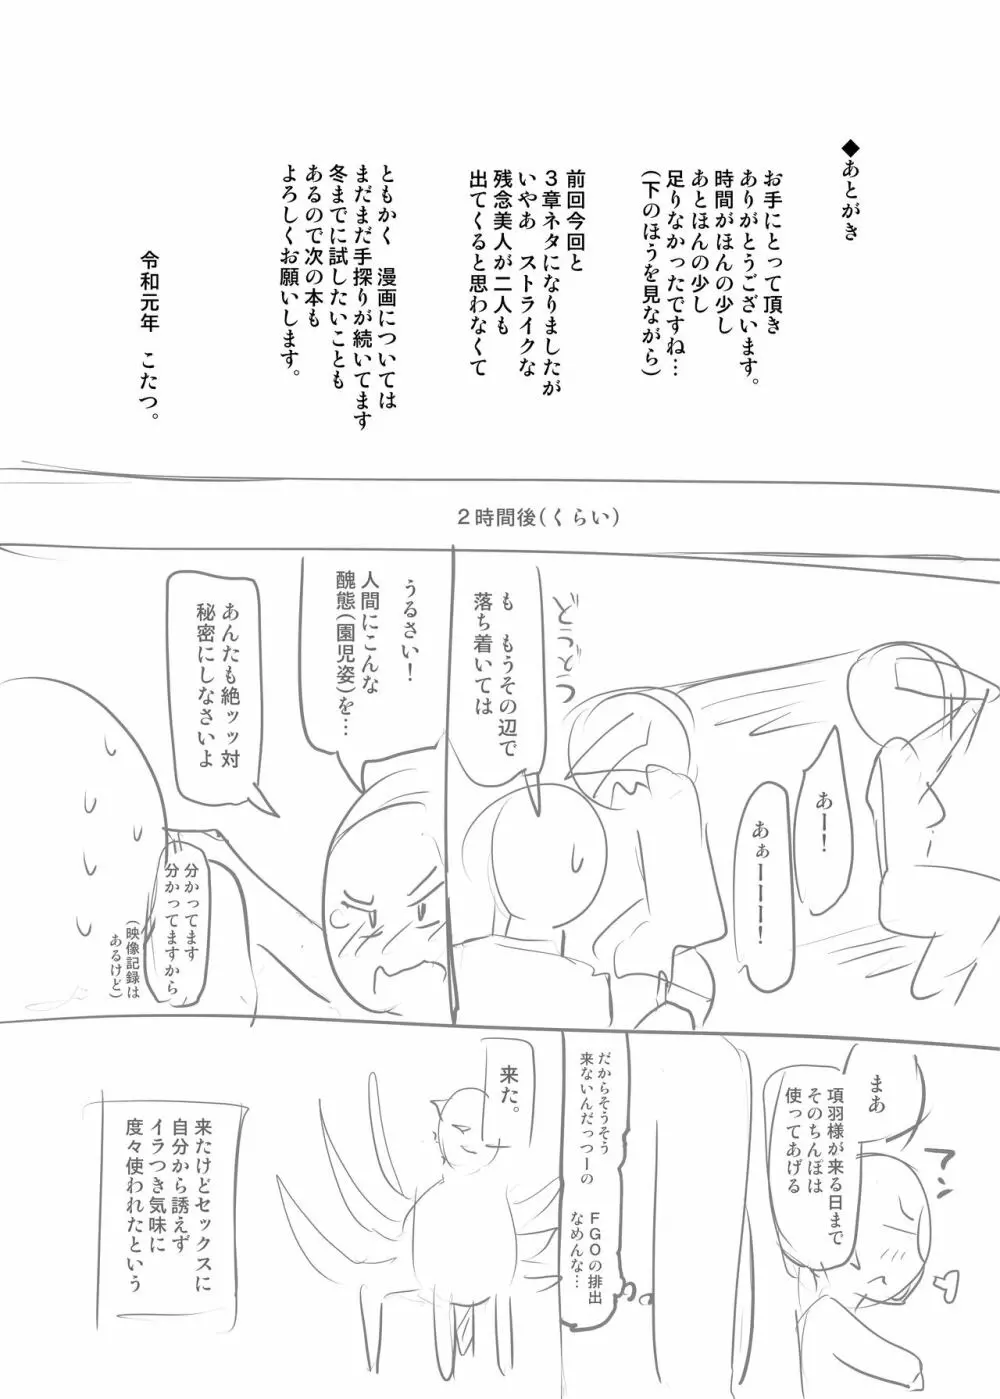 ◆あとがき
お手にとって頂き
ありがとうございます。
時間がほんの少し
あとほんの少し
足りなかったですね…
(下のほうを見ながら)
前回今回と
3章ネタになりましたが
いやあ　ストライクな
残念美人が二人も
出てくると思わなくて
ともかく　漫画については
まだまだ手探りが続いてます
冬までに試したいことも
あるので次の本も
よろしくお願いします。
令和元年　こたつ。
2時間後(くらい)
あー!
あぁーーーー!
も　もうその辺で
落ち着いては
うるさい!
人間にこんな
醜態(園児姿)を…
あんたも絶ッッ対
秘密にしなさいよ
分かってます
分かってますから
(映像記録は
あるけど)
まあ
項羽様が来る日まで
そのちんぽは
使ってあげる
だからそうそう
来ないんだっつーの
FGOの排出
なめんな…
来た。
来たけどセックスに
自分から誘えず
イラつき気味に
度々使われたという